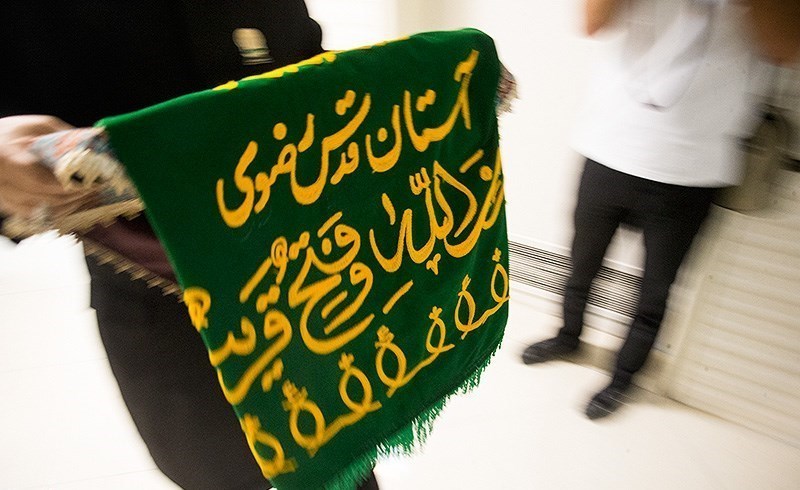 آستان قدس رضوی
نصر من الله و فتح قریب